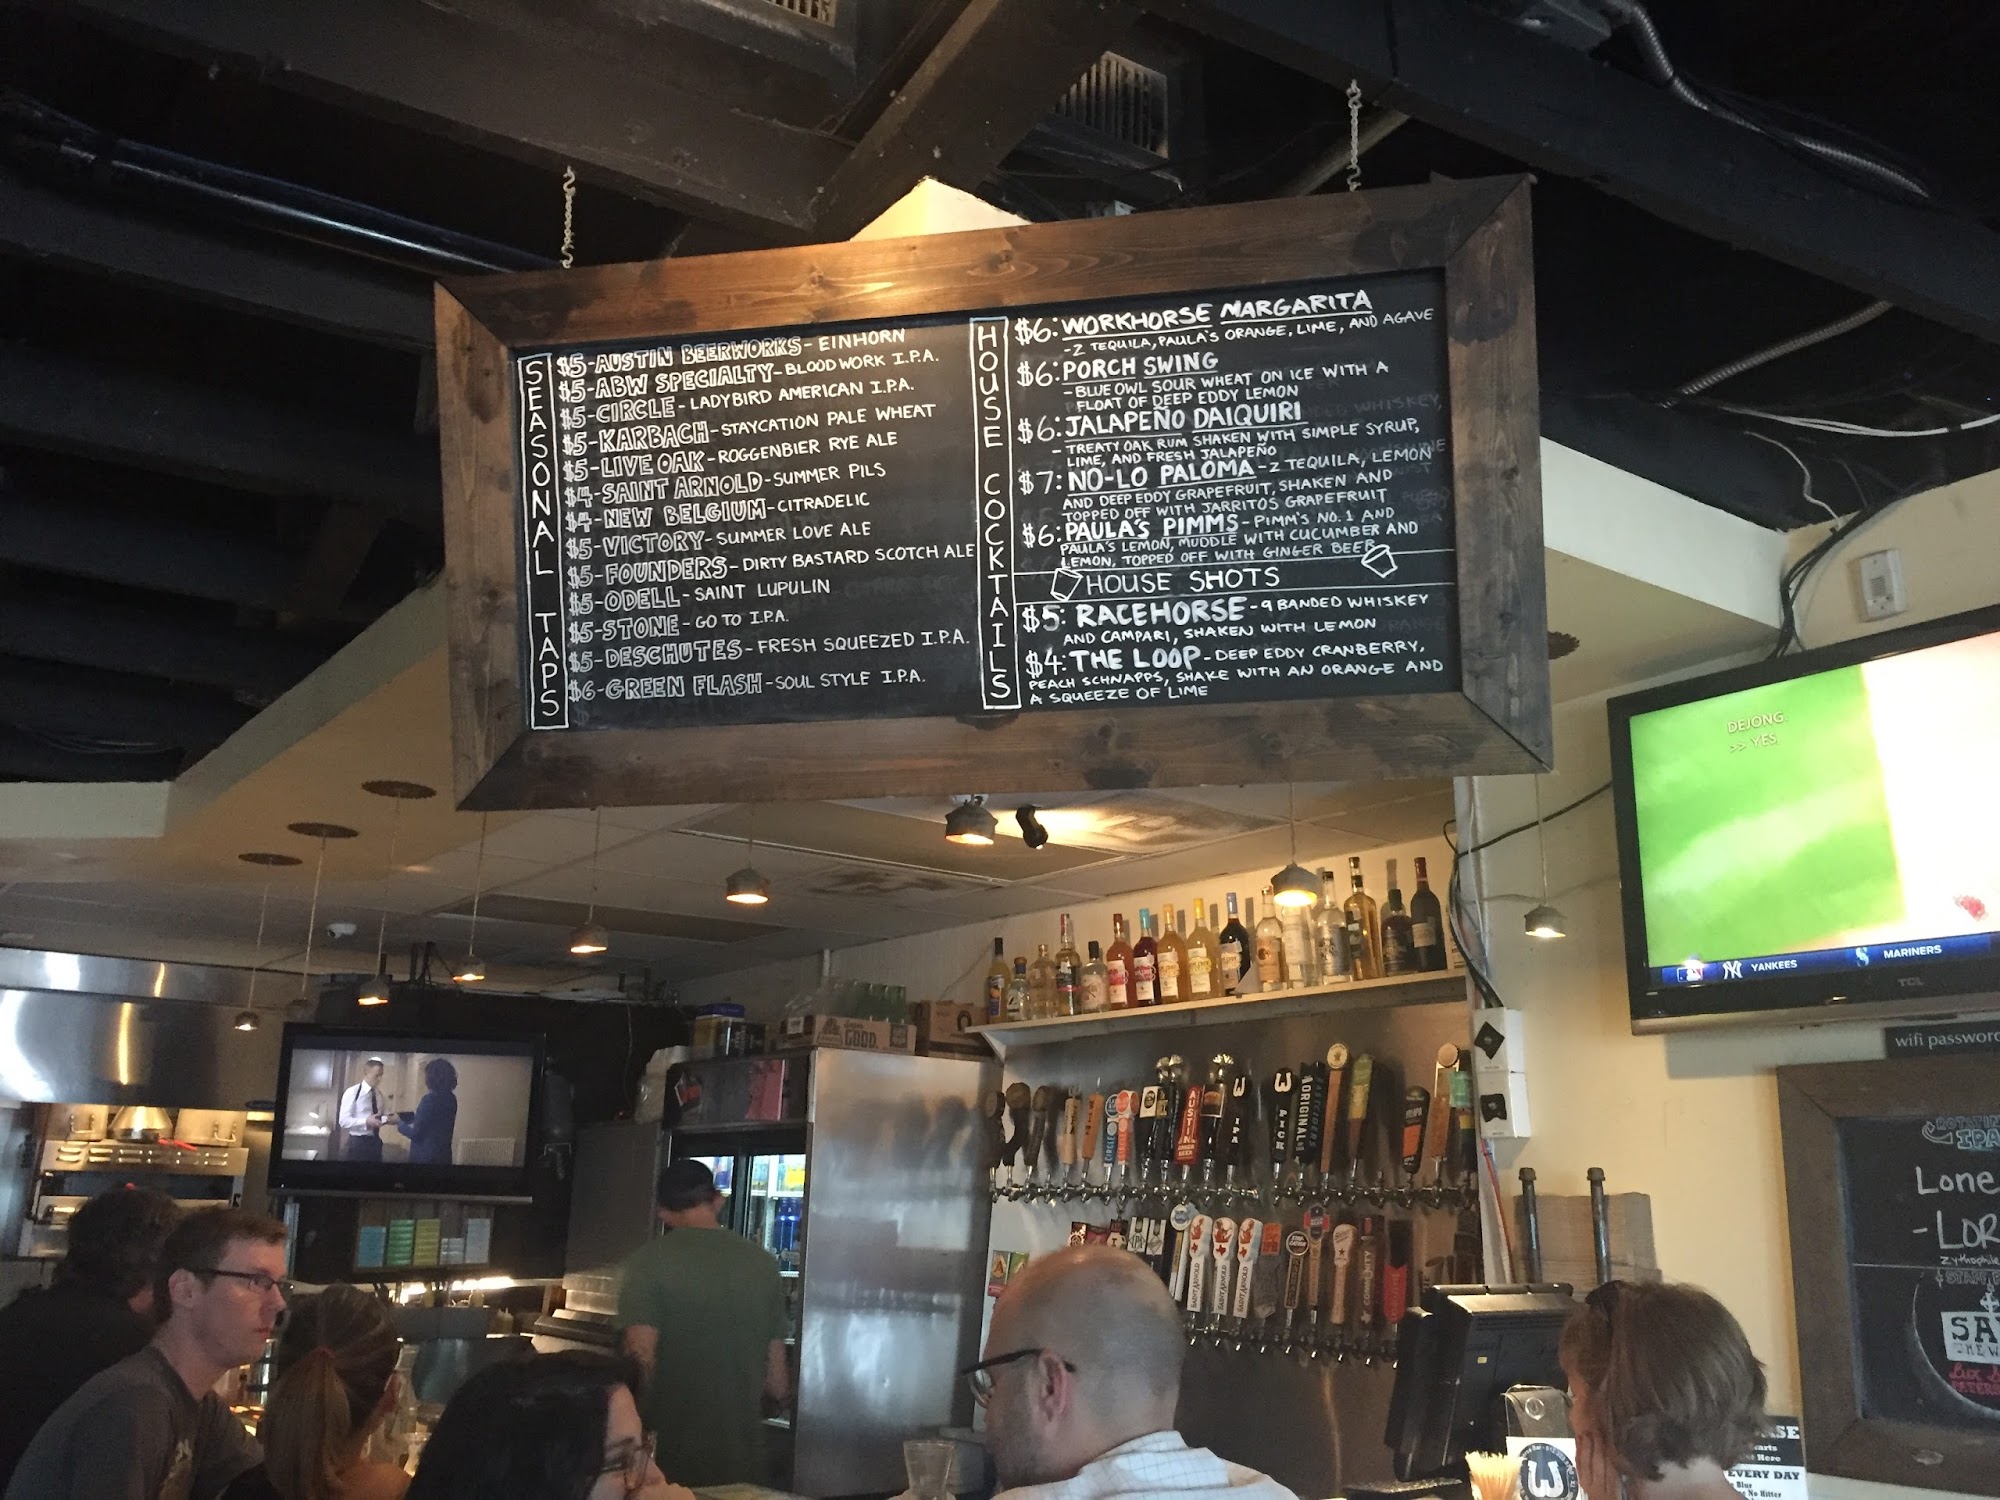 SEASONAL TAPS
$5-AUSTIN BEERWORKS-EINHORN
$5-ABW SPECIALTY-BLOOD WORK I.P.A.
$5-CIRCLE-LADYBIRD AMERICAN I.P.A.
$5-KARBACH-STAYCATION PALE WHEAT
$5-LIVE OAK-ROGGENBIER RYE ALE
$4-SAINT ARNOLD-SUMMER PILS
$4-NEW BELGIUM-CITRADELIC
$5-VICTORY-SUMMER LOVE ALE
$5-FOUNDERS-DIRTY BASTARD SCOTCH ALE
$5-ODELL-SAINT LUPULIN
$5-STONE-GO TO I.P.A.
$5-DESCHUTES-FRESH SQUEEZED I.P.A.
$6-GREEN FLASH-SOUL STYLE I.P.A.
HOUSE COCKTAILS
$6: WORKHORSE MARGARITA
-Z TEQUILA, PAULA'S ORANGE, LIME, AND AGAVE
$6: PORCH SWING
-BLUE OWL SOUR WHEAT ON ICE WITH A
FLOAT OF DEEP EDDY LEMON
$6: JALAPEÑO DAIQUIRI
- TREATY OAK RUM SHAKEN WITH SIMPLE SYRUP,
LIME, AND FRESH JALAPEÑO
$7: NO-LO PALOMA-Z TEQUILA, LEMON
AND DEEP EDDY GRAPEFRUIT, SHAKEN AND
TOPPED OFF WITH JARRITOS GRAPEFRUIT
$6: PAULA'S PIMMS-PIMM'S NO. 1 AND
PAULA'S LEMON, MUDDLE WITH CUCUMBER AND
LEMON, TOPPED OFF WITH GINGER BEER
HOUSE SHOTS
$5: RACEHORSE-9 BANDED WHISKEY
AND CAMPARI, SHAKEN WITH LEMON
$4: THE LOOP-DEEP EDDY CRANBERRY,
PEACH SCHNAPPS, SHAKE WITH AN ORANGE AND
A SQUEEZE OF LIME
DEJONG.
>> YES,
NY YANKEES MARINERS
TCL
wifi password
IPA
Lone
-LOR
SA
GOOD.
AUSTIN
CIRCLE
IPA
ORIGINAL
SAINT ARNOLD
SAINT ARNOLD
SAINT ARNOLD
COMMUNITY
EVERY DAY